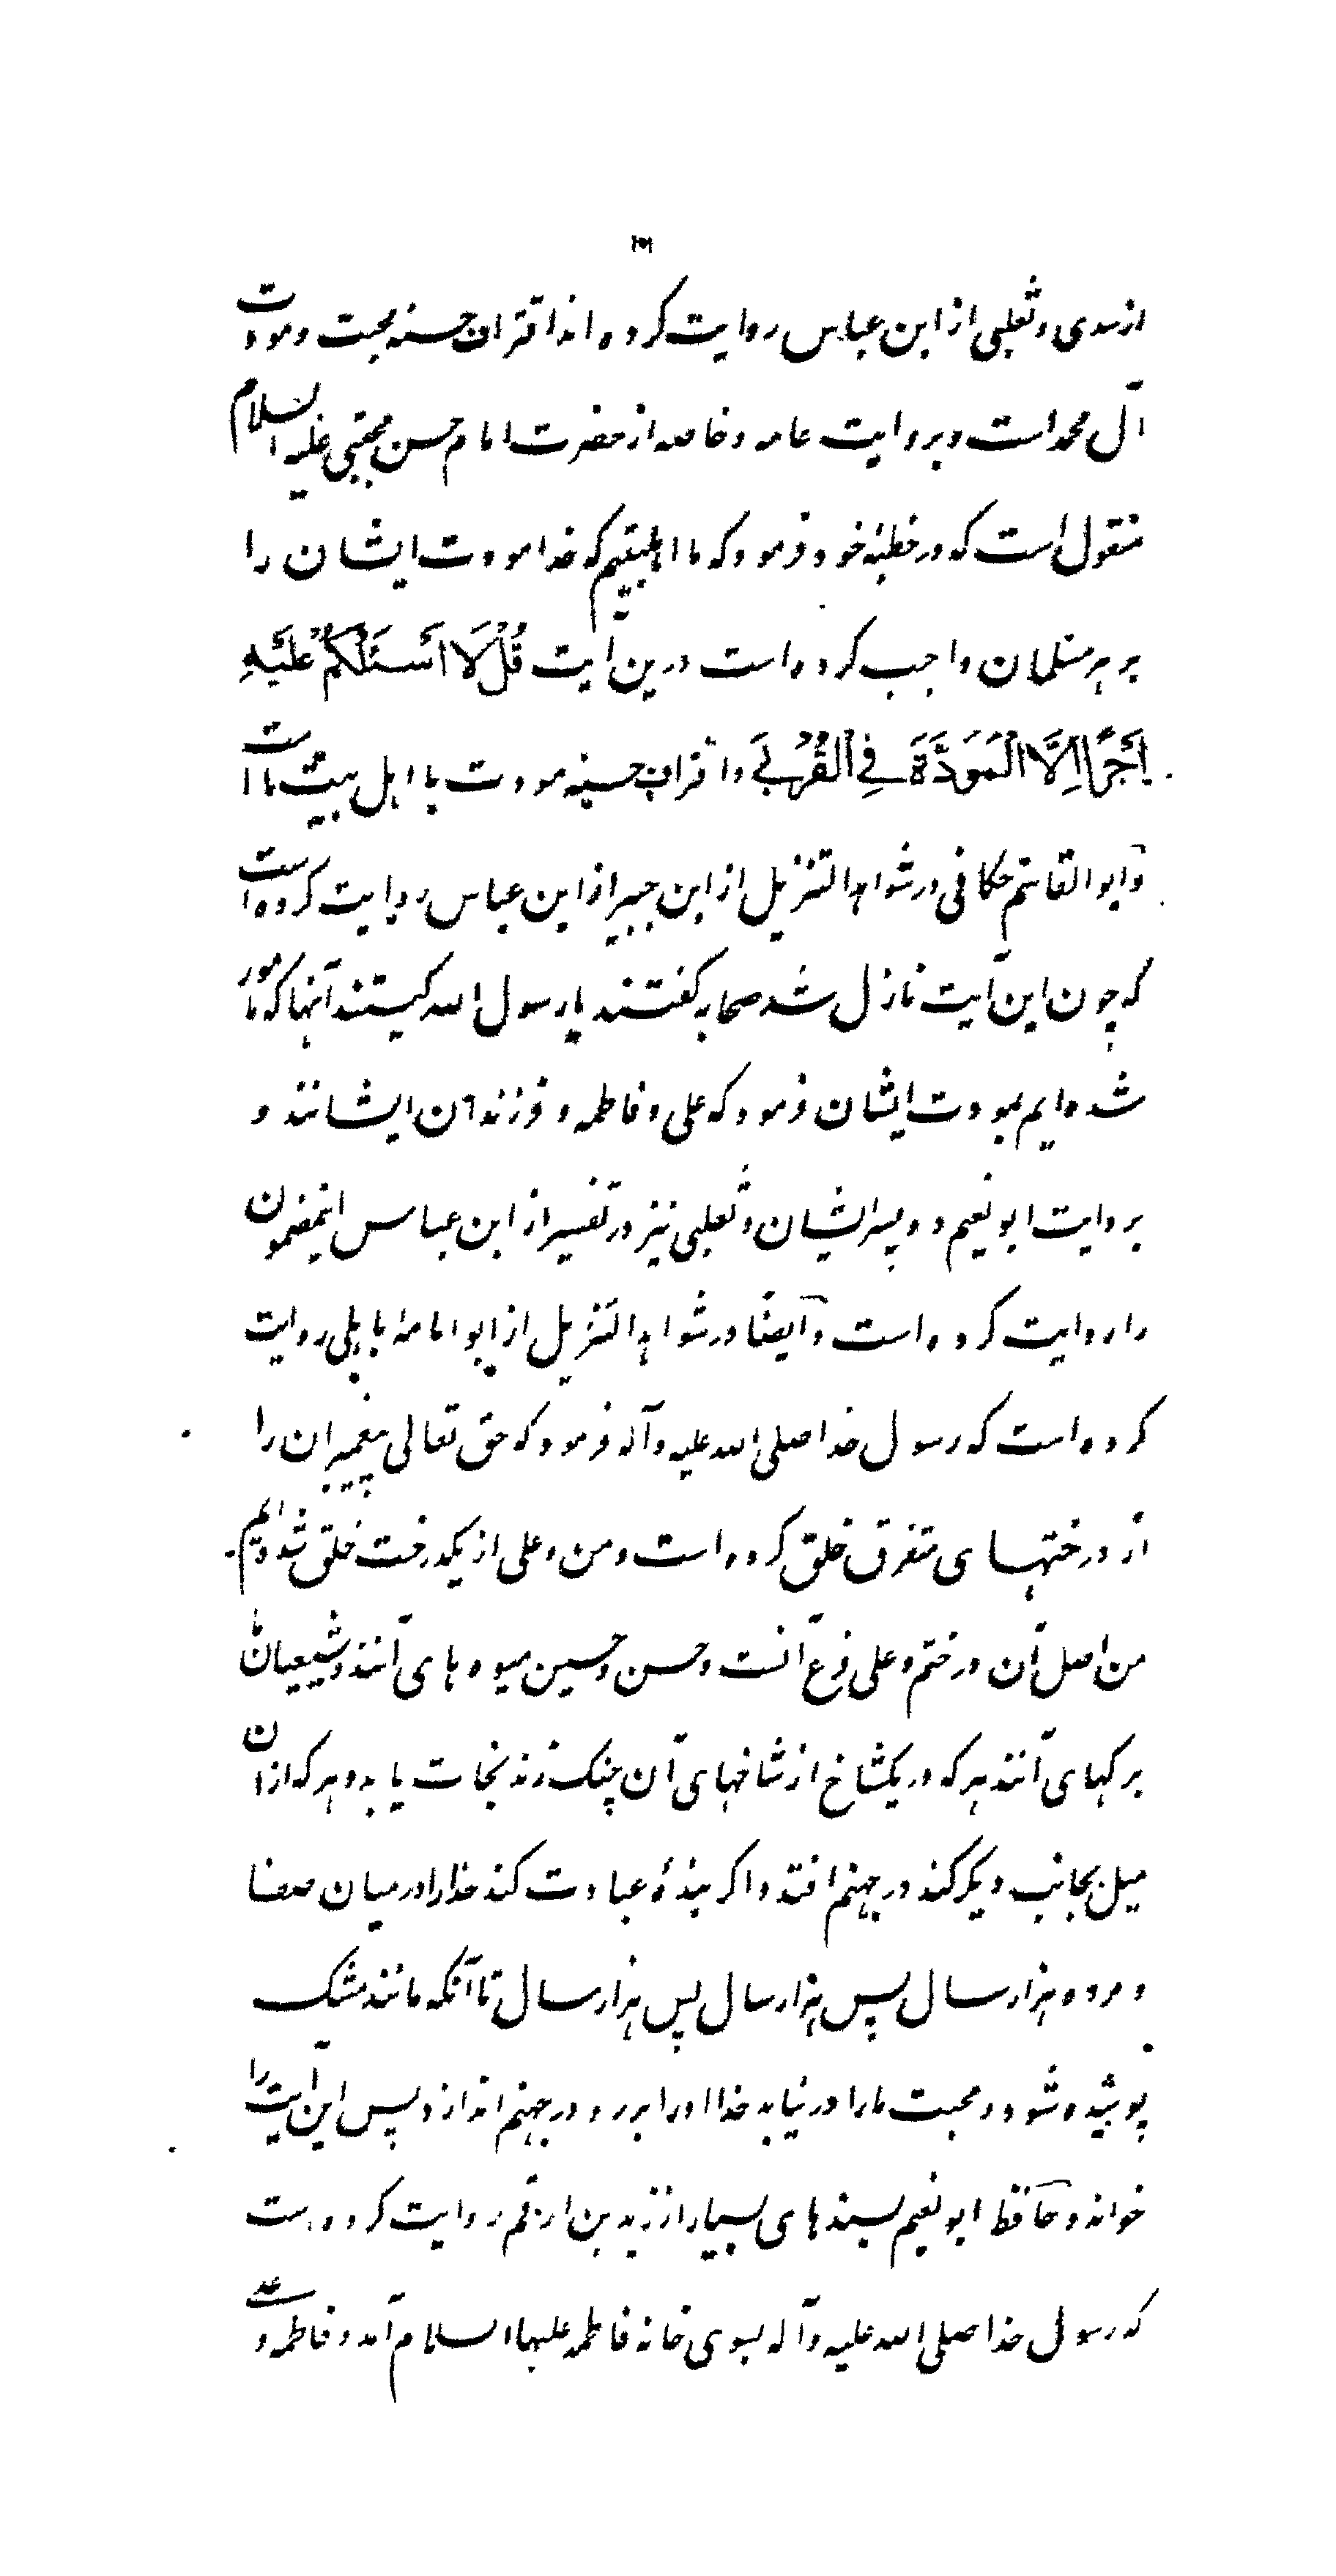 ازسدی و ثعلبی از ابن عباس روایت کرده اند اقتران حسنه محبت و مودت
آل محمد است و بروایت عامه و خاصه از حضرت امام حسن مجتبی علیه السلام
منقول است که در خطبهٔ خود فرمود که ما اهلبیتیم که خدا مودت ایشان را
بر هر مسلمان واجب کرده است درین آیت قُلْ لَا اَسْئَلُكُمْ عَلَيْهِ
اَجْرًا اِلَّا الْمَوَدَّةَ فِي الْقُرْبٰى واقتراف حسنه مودت با اهل بیت ما است
وابو القاسم حکافی در شواهد التنزیل از ابن جبیر از ابن عباس روایت کرده است
که چون این آیت نازل شد صحابه کفتند یا رسول الله کیستند آنها که مامور
شده ایم بمودت ایشان فرمود که علی و فاطمه و فرزندان ایشانند و
بروایت ابو نعیم دو پسر ایشان و ثعلبی نیز در تفسیر از ابن عباس اینمضمون
را روایت کرده است وایضًا در شواهد التنزیل از ابو امامهٔ باهلی روایت
کرده است که رسول خدا صلی الله علیه وآله فرمود که حق تعالی پیغمبران را
از درختهای متفرق خلق کرده است و من و علی از یکدرخت خلق شده ایم
من اصل آن درختم و علی فرع آنست و حسن و حسین میوه های آنند و شیعیان ما
برکهای آنند هر که در یکشاخ از شاخهای آن چنک زند نجات یابد و هر که ازان
میل بجانب دیکر کند در جهنم افتد و اکر بندهٔ عبادت کند خدا را در میان صفا
و مروه هزار سال پس هزار سال پس هزار سال تا آنکه مانند مشک
پوشیده شود و محبت ما را در نیابد خدا او را برو در جهنم اندازد پس این آیت را
خواند و حافظ ابو نعیم بسند های بسیار از زید بن ارقم روایت کرده است
که رسول خدا صلی الله علیه وآله بسوی خانه فاطمه علیها السلام آمد و فاطمه و علی